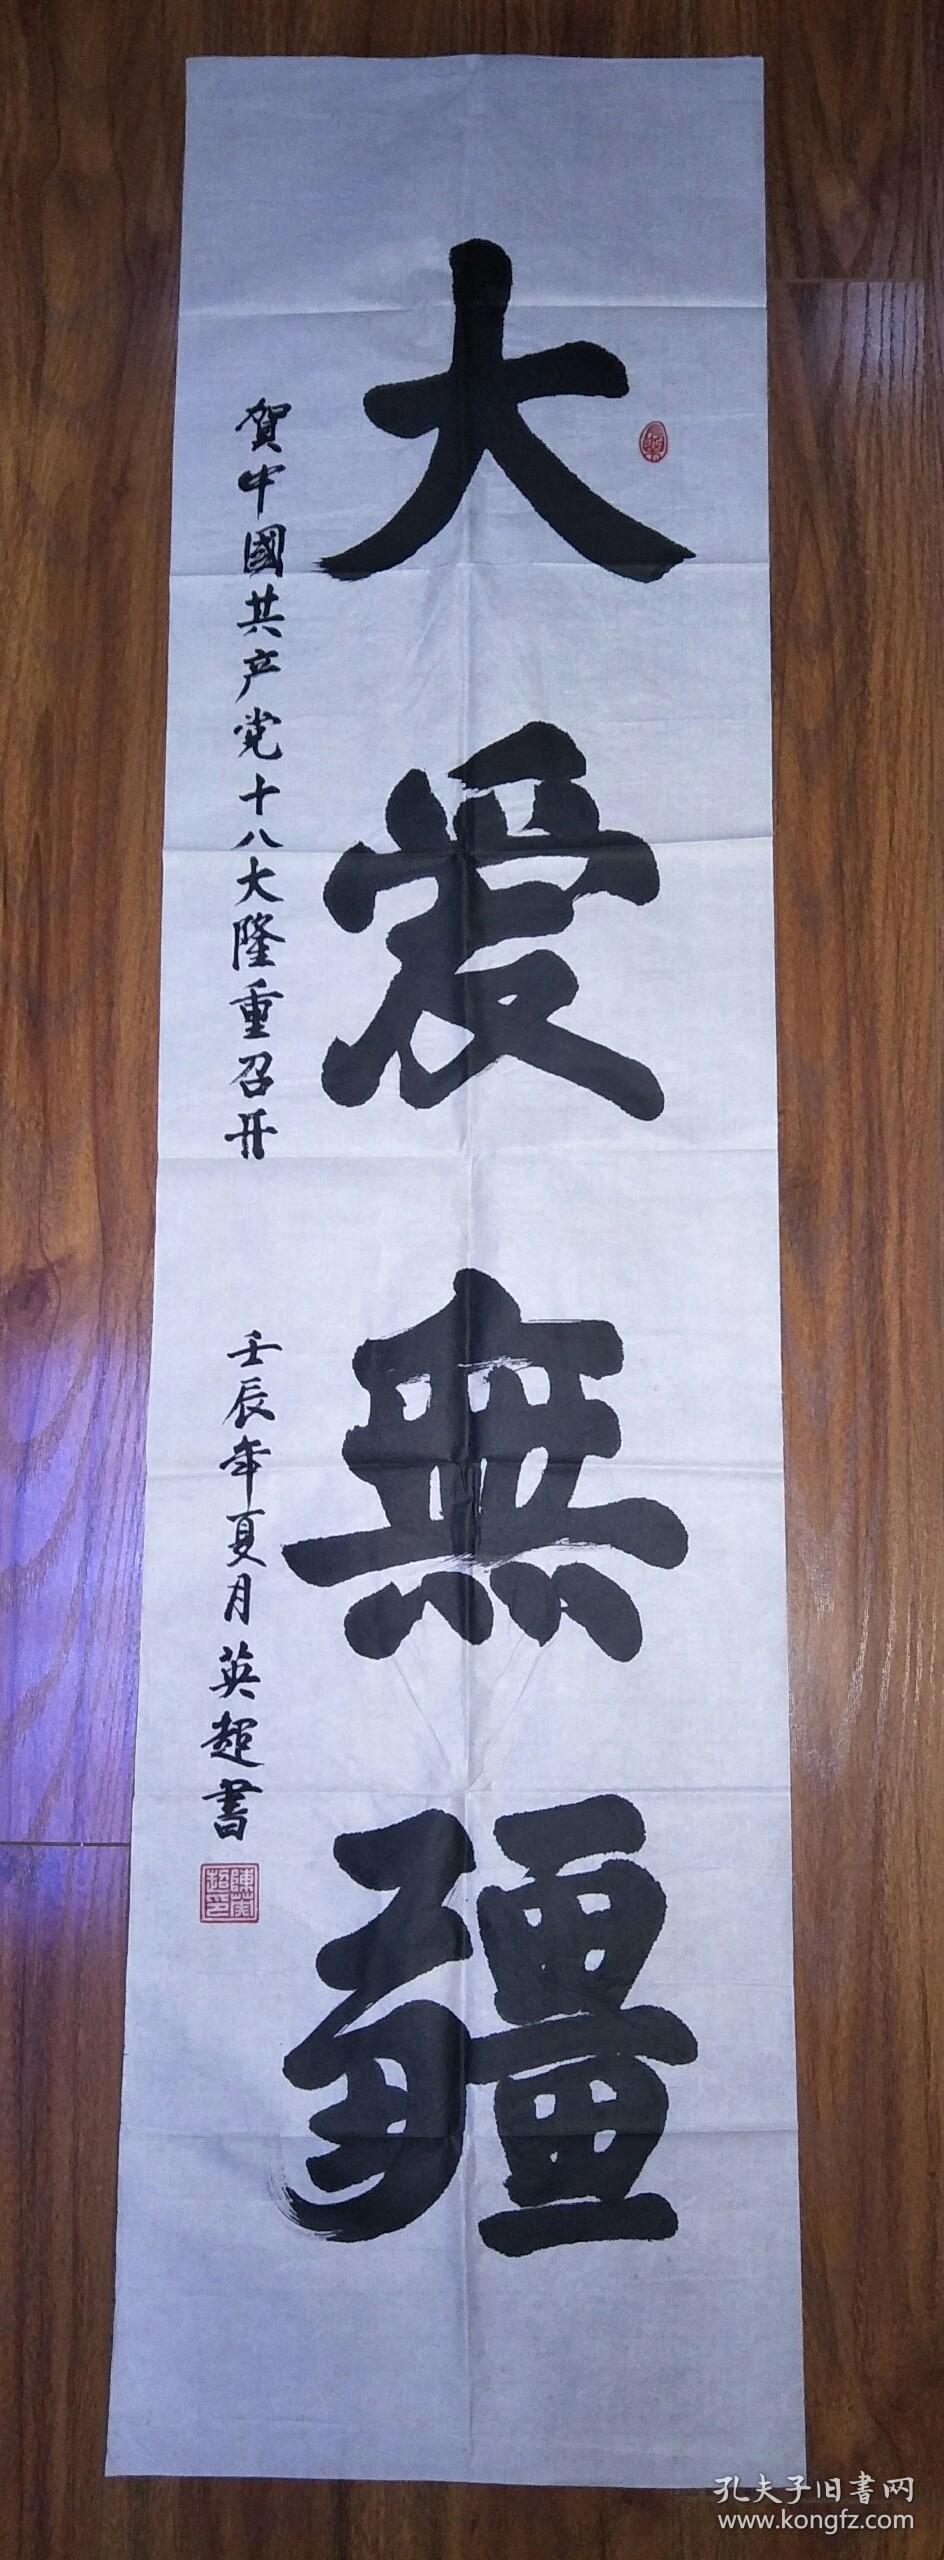 大愛無疆
賀中國共产党十八大隆重召开
壬辰年夏月英超書
陳英超印
孔夫子旧书网
www.kongfz.com